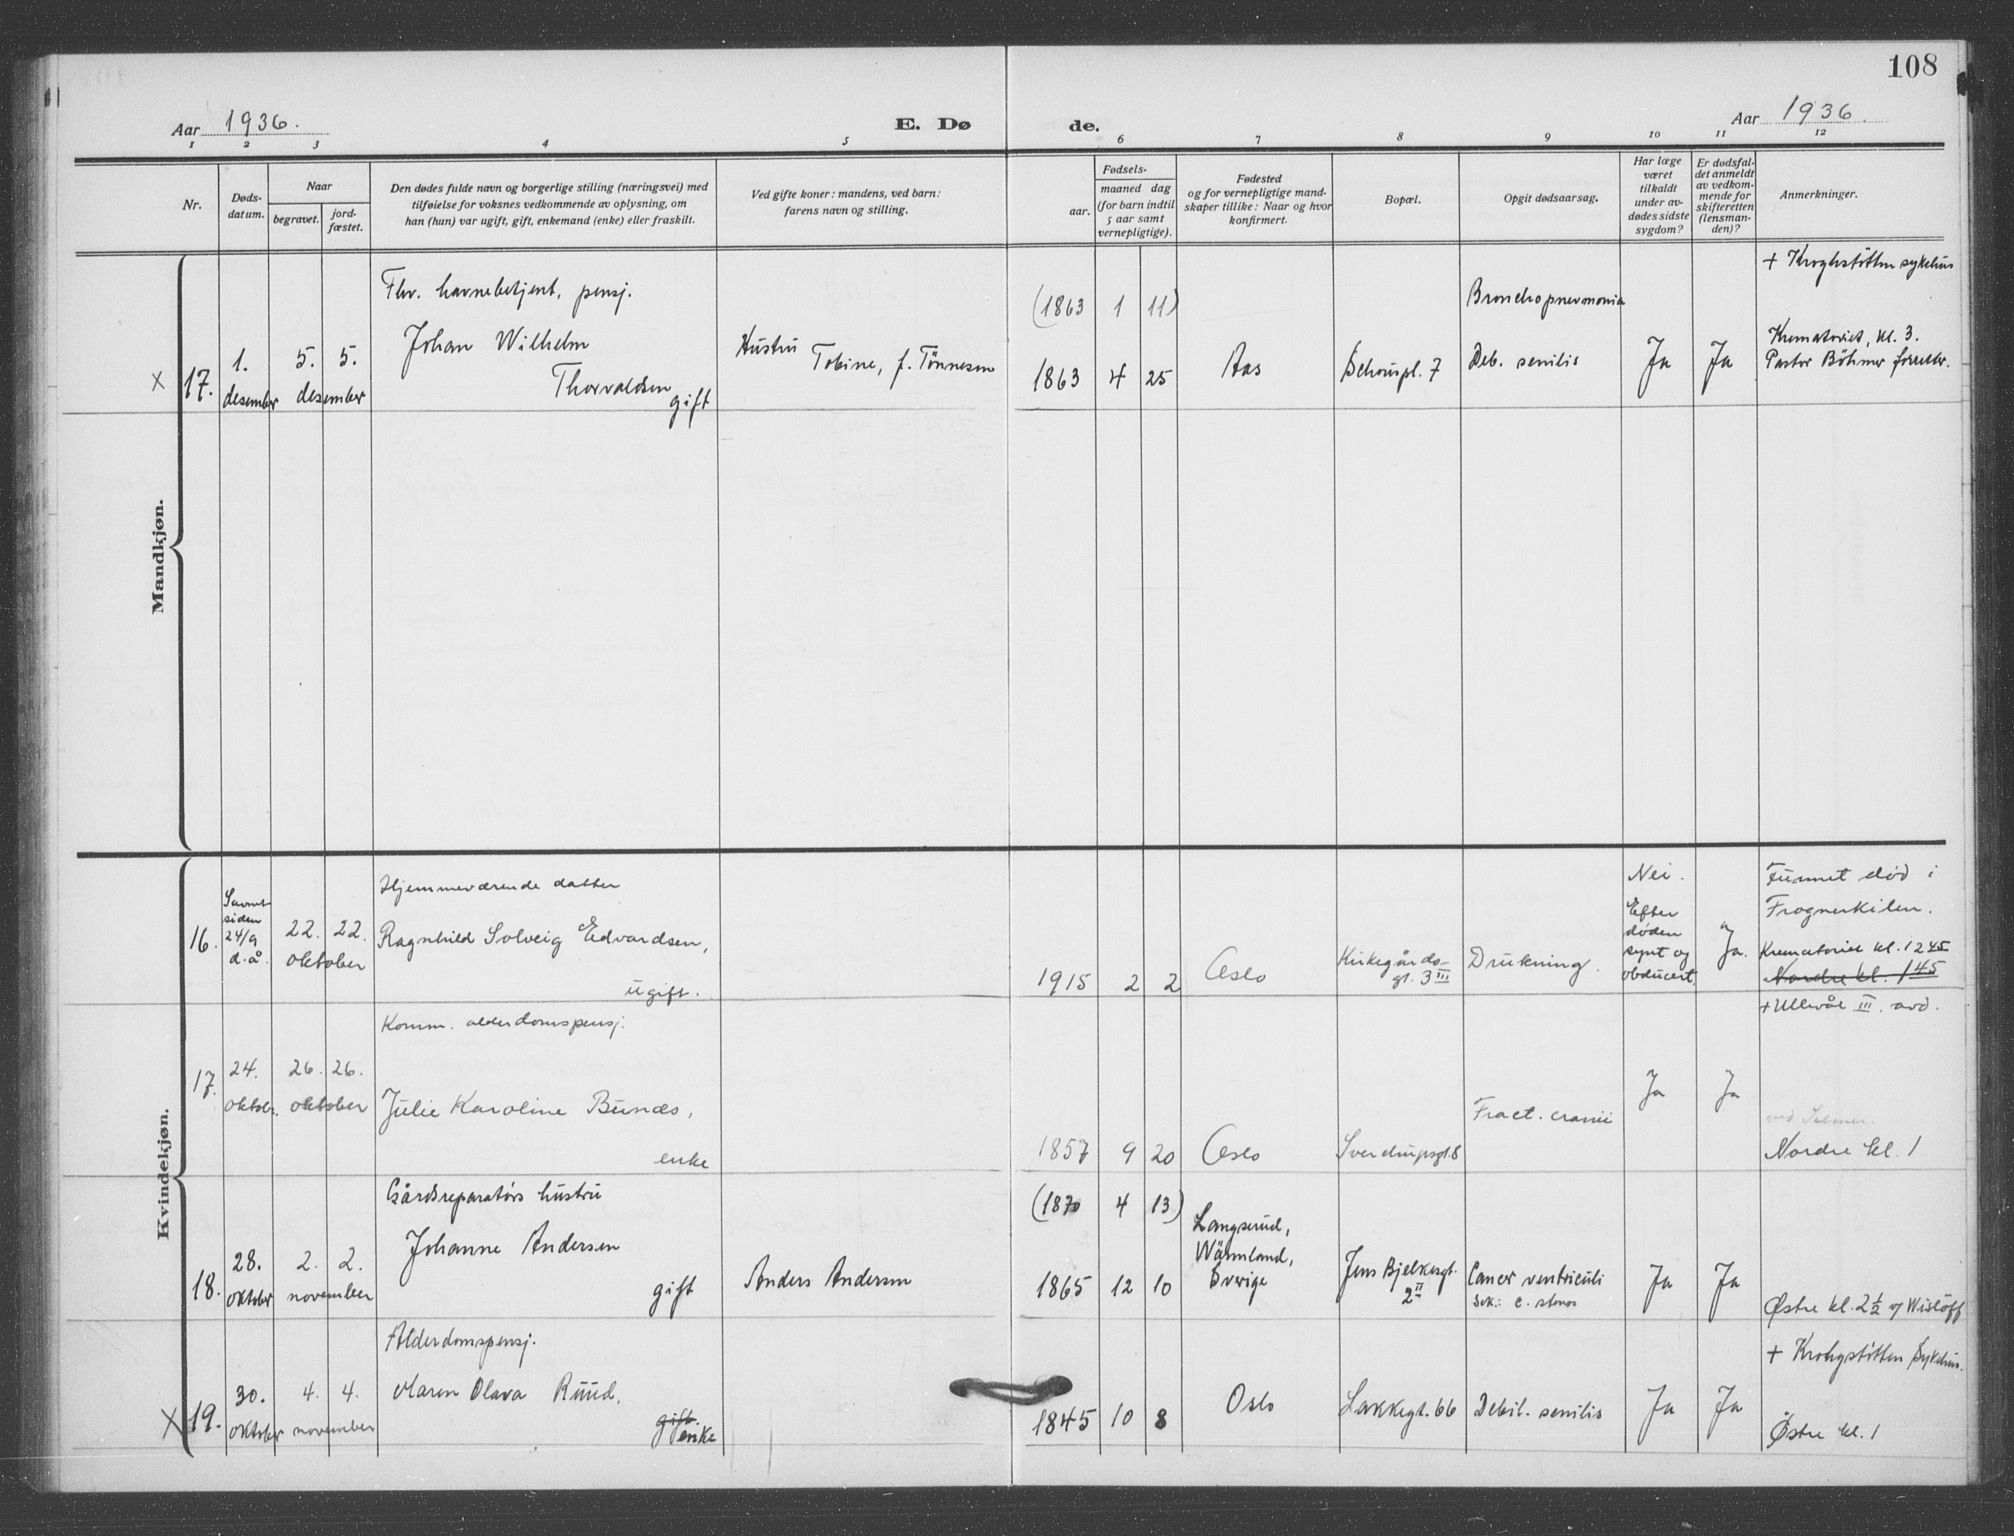 108
Aar 1936.
E. Dø
de.
Aar 1936.
1 2 3 4 5 6 7 8 9 10 11 12
Nr.
Døds-
datum.
Naar
begravet.
jord-
fæstet.
Den dødes fulde navn og borgerlige stilling (næringsvei) med
tilføielse for voksnes vedkommende av oplysning, om
han (hun) var ugift, gift, enkemand (enke) eller fraskilt.
Ved gifte koner: mandens, ved barn:
farens navn og stilling.
Fødsels-
aar.
maaned dag
(for barn indtil
5 aar samt
vernepligtige).
Fødested
og for vernepligtige mand-
skaper tillike: Naar og hvor
konfirmert.
Bopæl.
Opgit dødsaarsag.
Har læge
været
tilkaldt
under av-
dødes sidste
sygdom?
Er dødsfal-
det anmeldt
av vedkom-
mende for
skifteretten
(lensman-
den)?
Anmerkninger.
Mandkjøn.
x 17.
1.
desember
5. 5.
desember
Fhv. havnebetjent, pensj.
Johan Wilhelm
Thorvaldsen
gift
Hustru
Tobine, f. Tønnesen
(1863 1 11)
1863 4 25
Aas
Schouspl. 7
Bronchopnevmonia
Deb. senilis
Ja
Ja
+ Kroghstøtten sykehus
Krematoriet, kl. 3.
Pastor Böhmer forretter.
Kvindekjøn.
16.
Savnet
siden
24/9
d.å.
22. 22.
oktober
Hjemmeværende datter
Ragnhild Solveig Edvardsen,
ugift.
1915 2 2
Oslo
Kirkegårds-
gt. 3 III
Drukning.
Nei.
Efter
døden
synt og
obducert
Ja.
Funnet død i
Frognerkilen.
Krematoriet kl. 12 45
Nordre kl. 1 45
17.
24.
oktober.
26. 26.
oktober
Komm. alderdomspensj.
Julie Karoline Bunæs,
enke
1857 9 20
Oslo
Sverdrupsgt. 8
Fract. cranii
Ja
Ja
+ Ullevål III. avd.
Nordre kl. 1
18.
28.
oktober
2. 2.
november
Gårdsreparatørs hustru
Johanne Andersen
gift
Anders Andersen
(1870 4 13)
1865 12 10
Langserud,
Wärmland,
Sverige
Jens Bjelkesgt.
2 II
Cancer ventriculi
Ja
Ja
Østre kl. 2 1/2 v/ Wisløff
x 19.
30.
oktober
4. 4.
november
Alderdomspensj.
Maren Olava Ruud,
gift.
enke
1845 10 8
Oslo
Lakkegt. 66
Debil. senilis
Ja
Ja
+ Krohgstøtten Sykehus.
Østre kl. 1